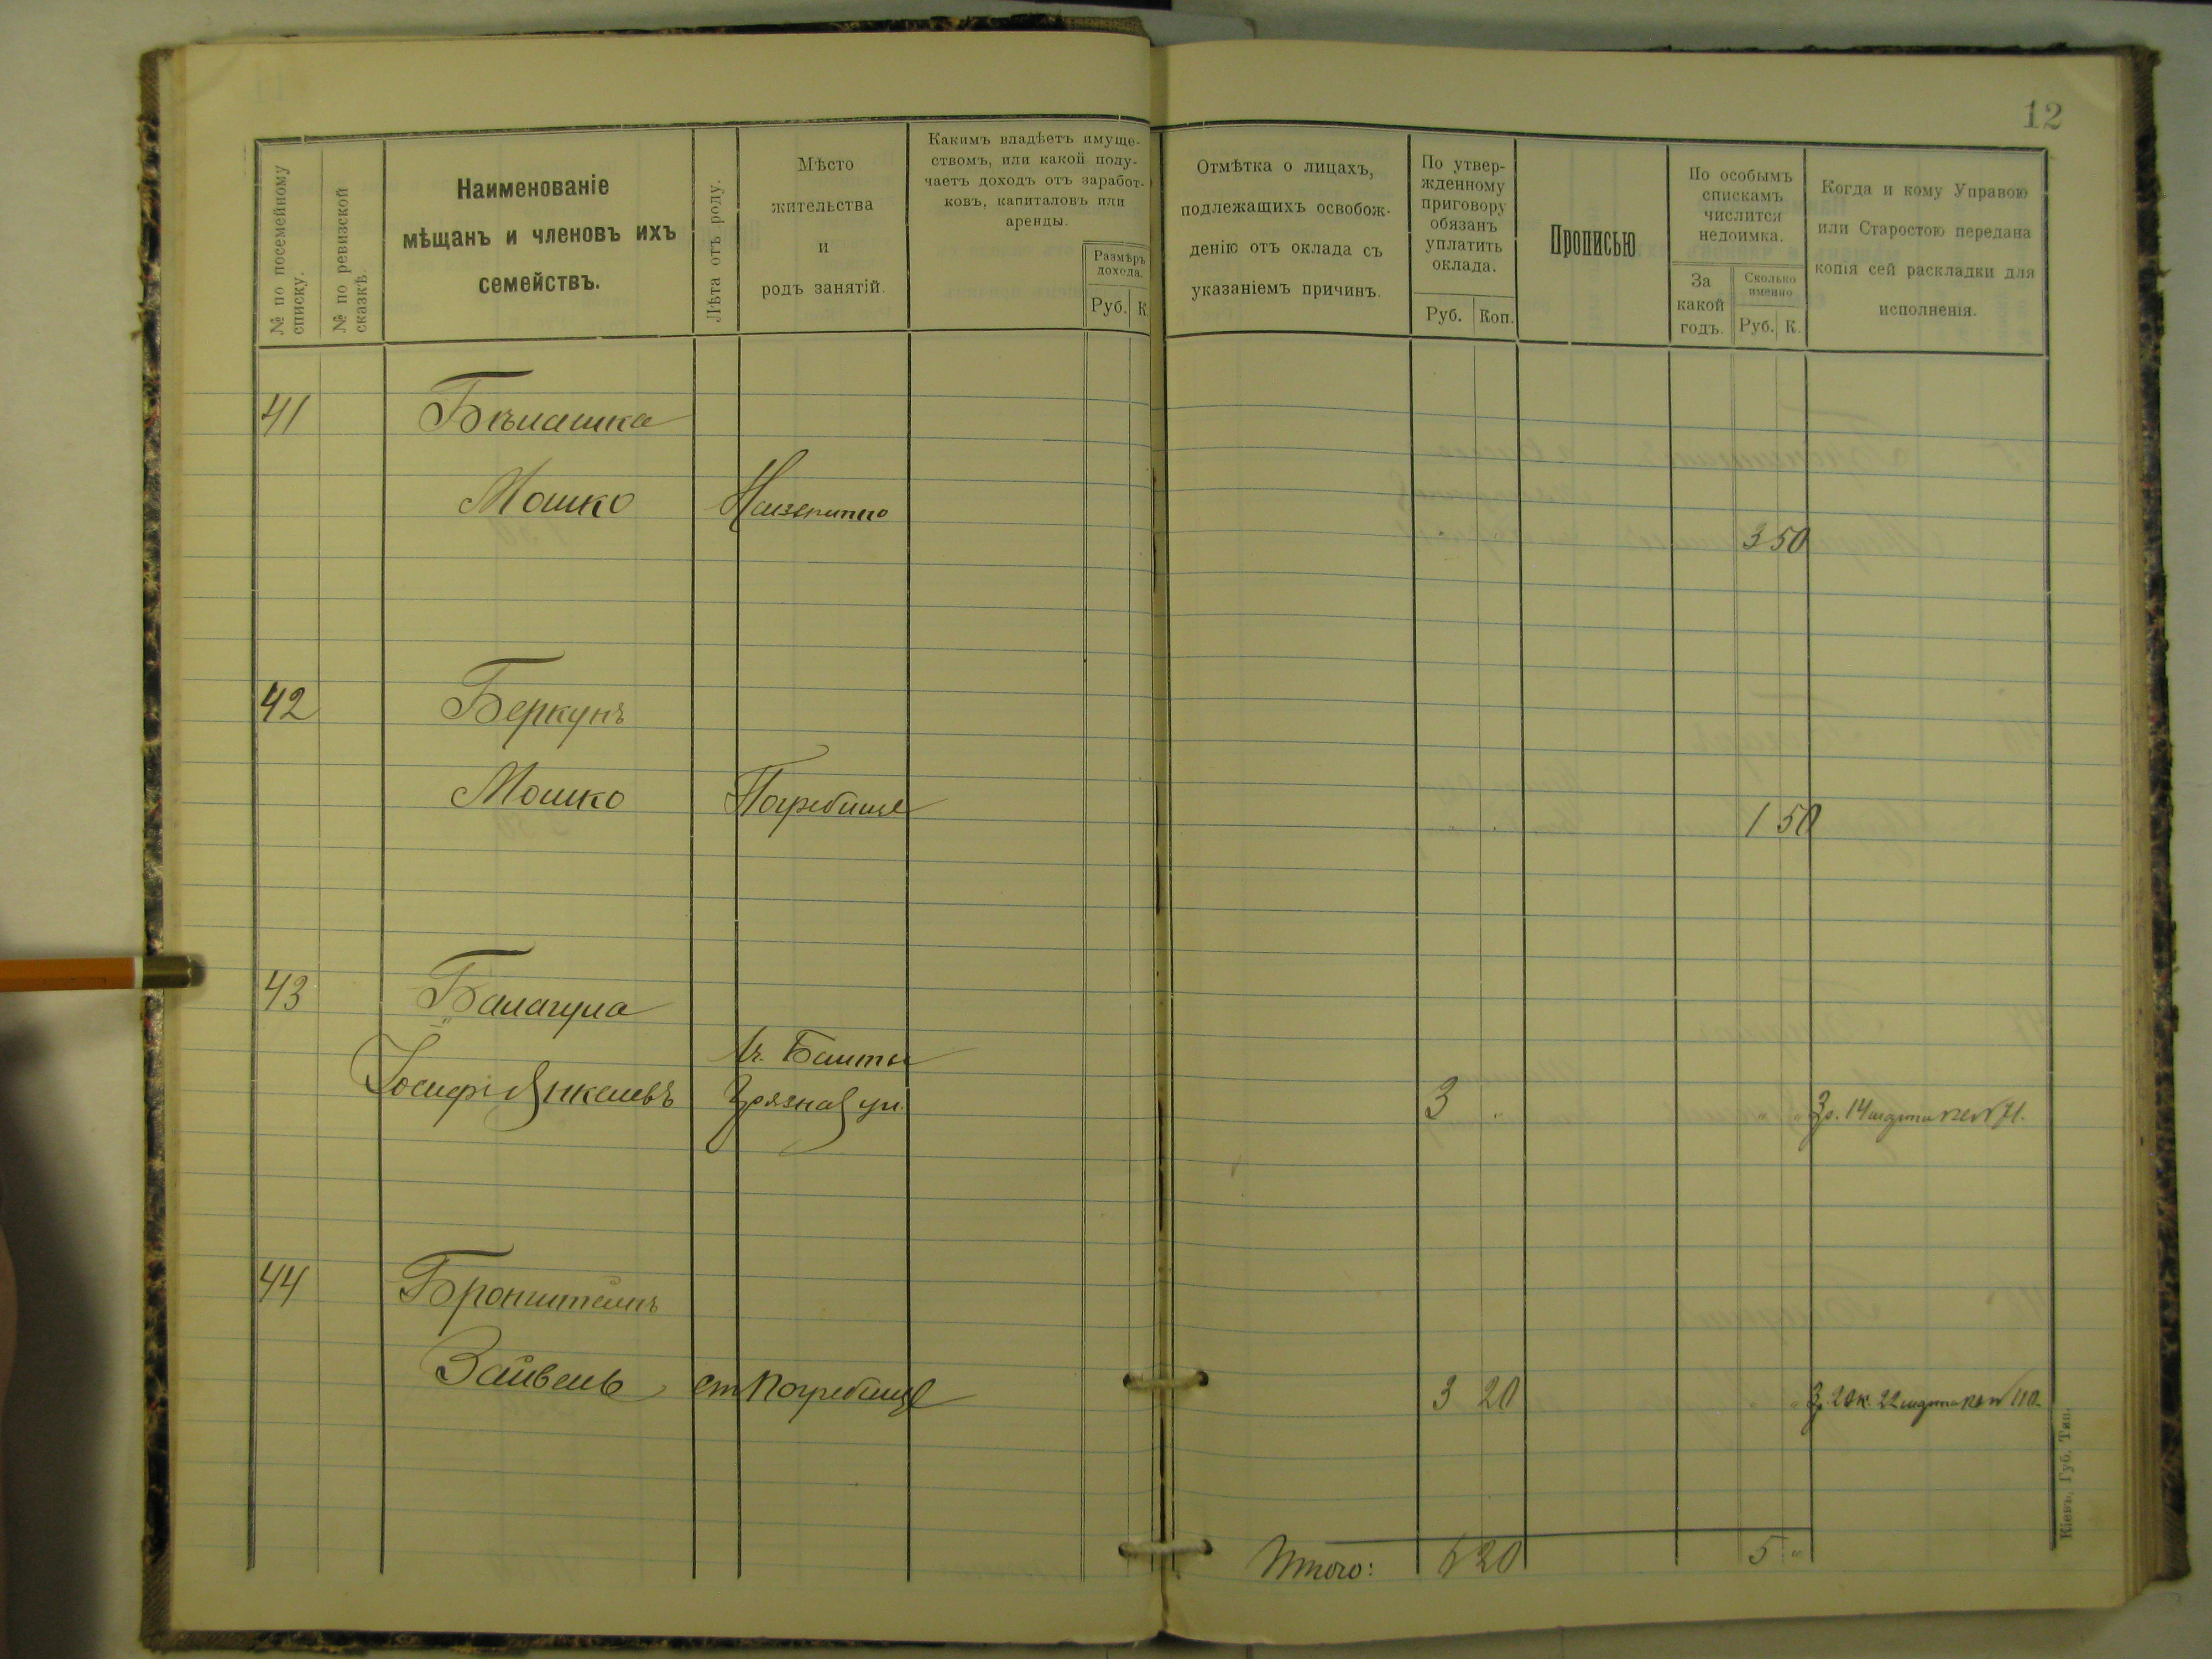 12
№ по посемейному списку.
№ по ревизской сказкѣ.
Наименованіе
мѣщанъ и членовъ ихъ
семействъ.
Лѣта отъ роду.
Мѣсто
жительства
и
родъ занятій.
Какимъ владѣетъ имуще-
ствомъ, или какой полу-
чаетъ доходъ отъ заработ-
ковъ, капиталовъ или
аренды.
Размѣръ
дохода.
Руб. К.
Отмѣтка о лицахъ,
подлежащихъ освобож-
денію отъ оклада съ
указаніемъ причинъ.
По утвер-
жденному
приговору
обязанъ
уплатить
оклада.
Руб. Коп.
Прописью
По особымъ
спискамъ
числится
недоимка.
За
какой
годъ.
Сколько
именно
Руб. К.
Когда и кому Управою
или Старостою передана
копія сей раскладки для
исполненія.
41 Бѣлашка
Мошко
3 50
42 Беркунъ
Мошко Погребище 1 50
43 Балагула
м. Башты
Іосифъ Янкелевъ Грязная ул. 3 " " " 3 р. 14 марта № 71.
44 Бронштейнъ
Зайвель ст Погребище 3 20 " " 3 р. 20 к. 22 марта № 110
Итого: 6 20 5 "
Кіевъ, Губ. Тип.